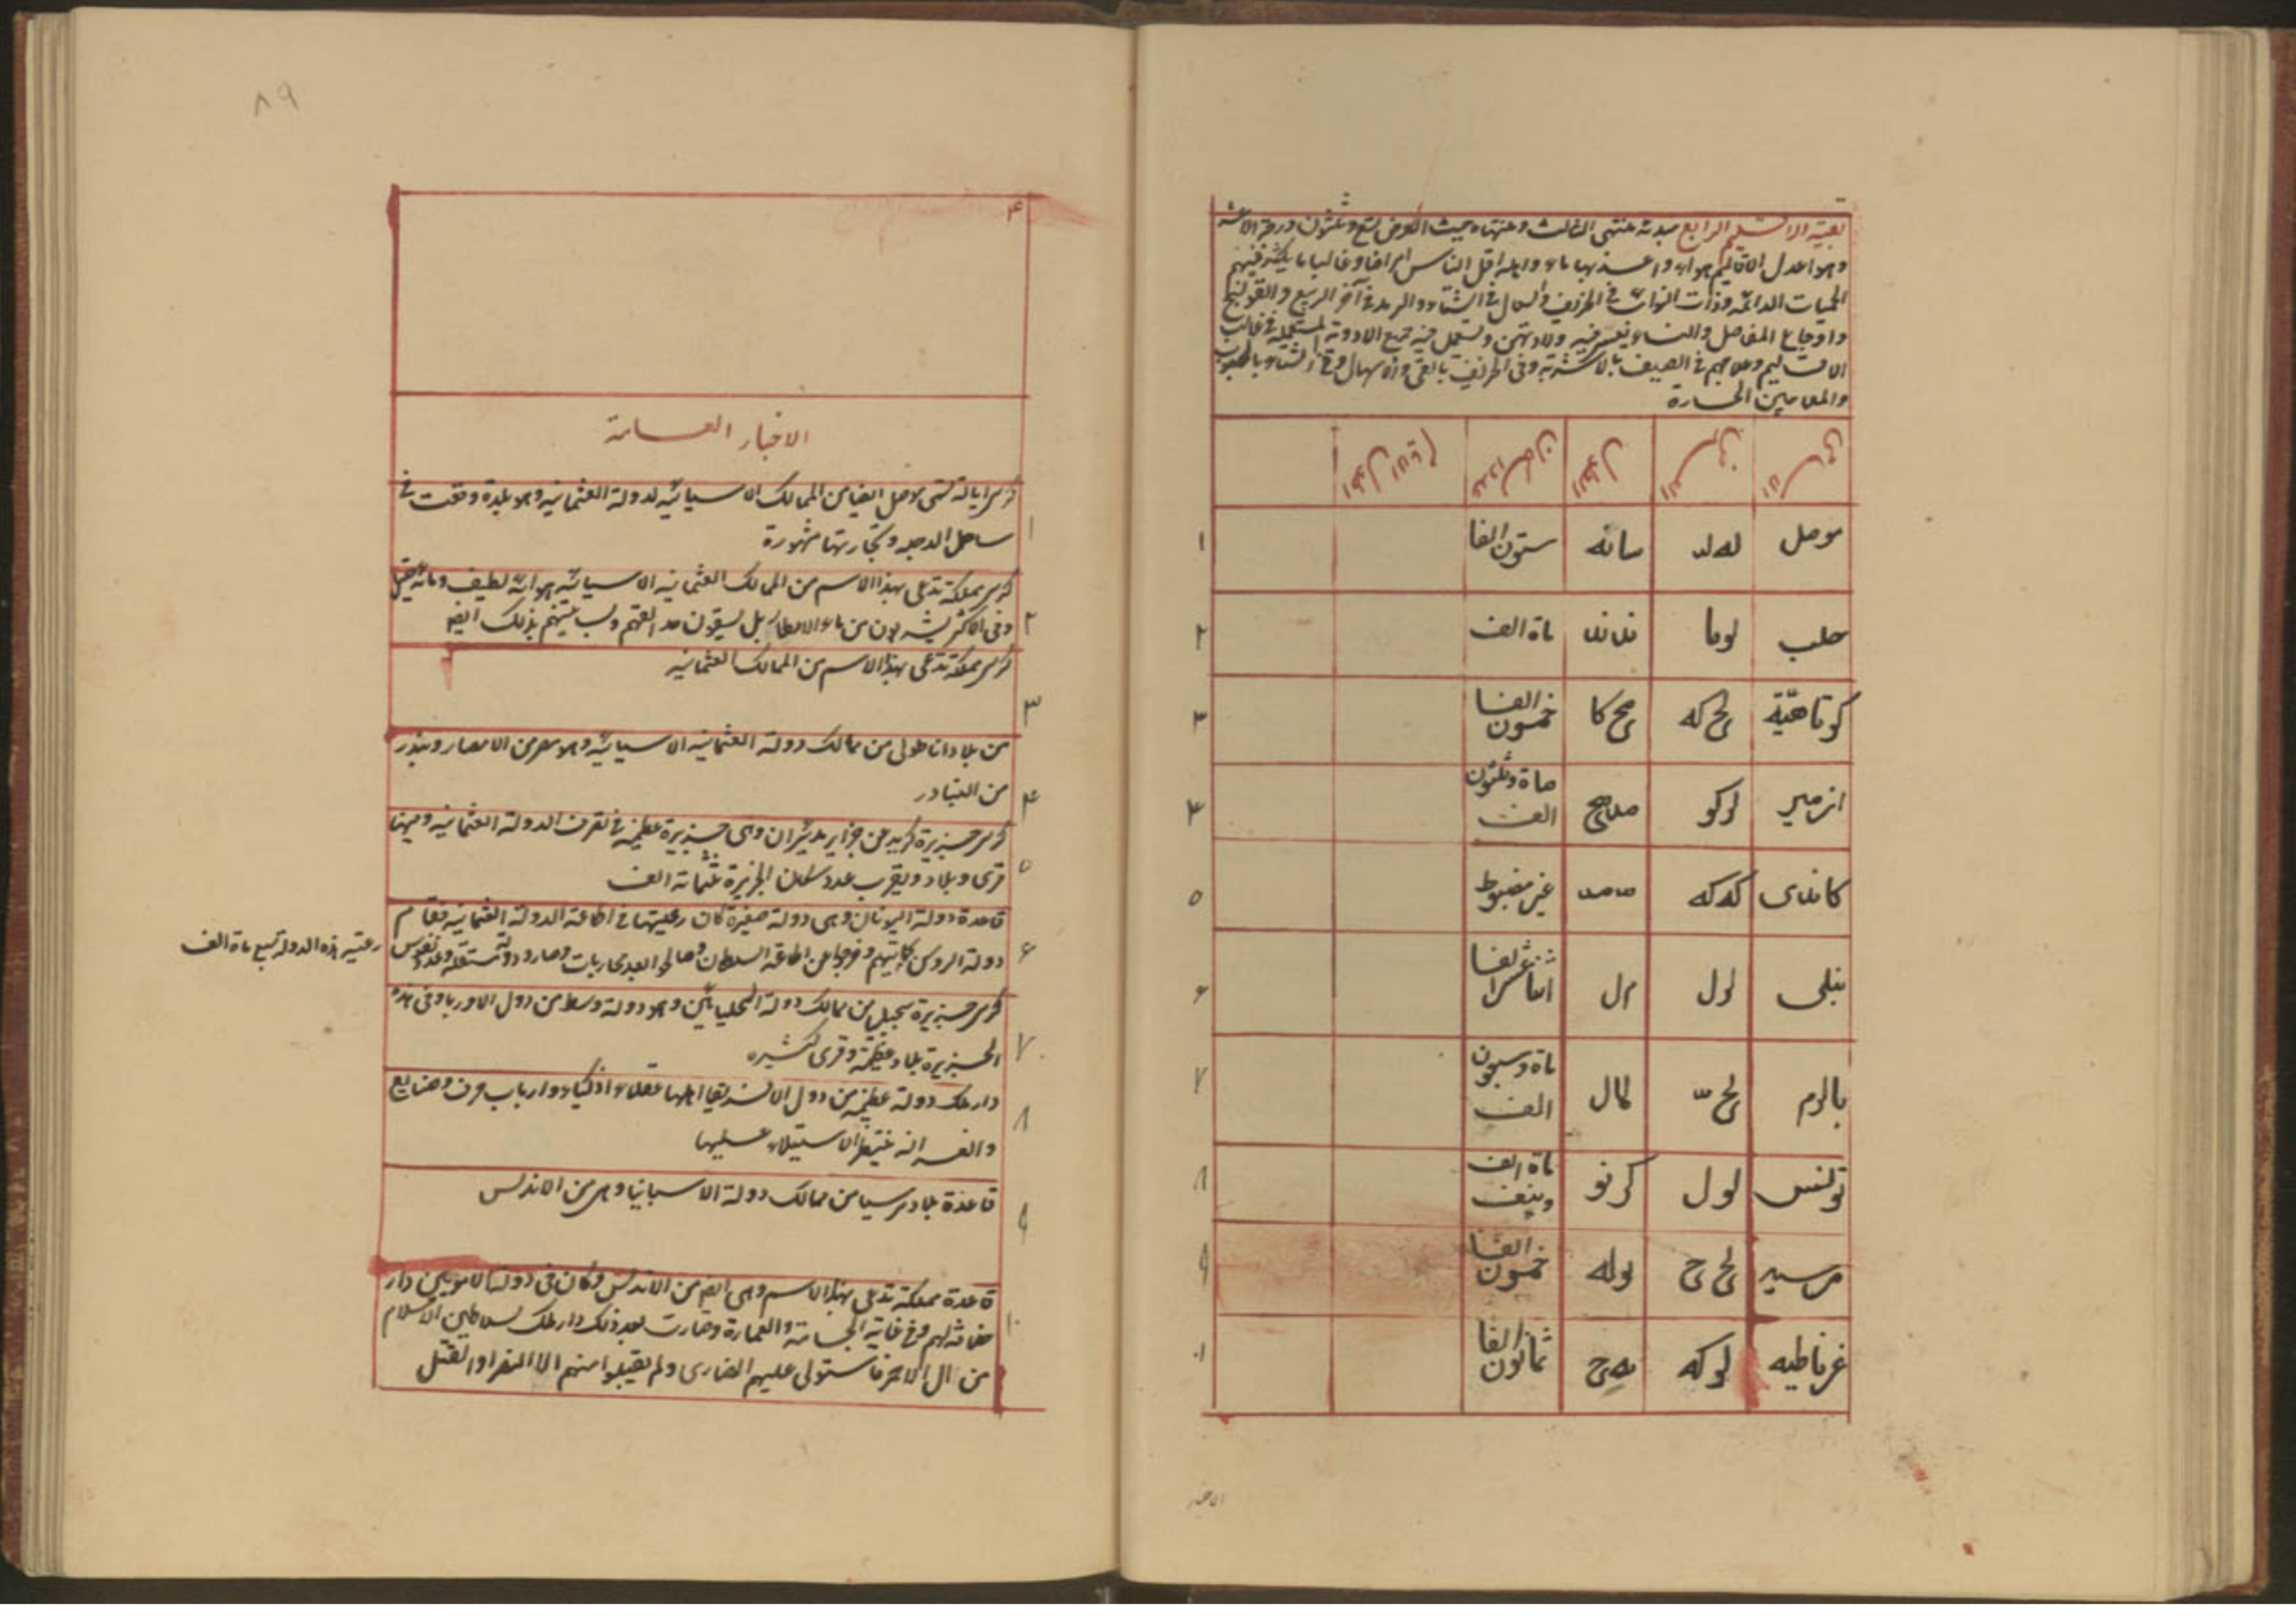 بقية الاقليم الرابع مبدئه منتهى الثالث ومنتهاه حيث العرض تسع وثلثون درجة الا عشر
وهو اعدل الاقاليم هواء واعذبها ماء واهله اقل الناس امراضا وغالبا ما يكثر فيهم
الحميات الدائمه وذات النوائب في الخريف والسعال في الشتاء والرمد في آخر الربيع والقولنج
واوجاع المفاصل والنساء يعسر فيه ولادتهن ويستعمل فيه جميع الادوية المستعملة في غالب
الاقاليم وعلاجهم في الصيف بالاشربة وفي الخريف بالقئ والاسهال وفي الشتاء بالحبوب
والمعاجين الحارة
الاسامى العرض الطول عدد السكان اطول الايام
موصل له لد سانه ستون الفا ١
حلب لوما ماة الف ٢
كوتاهيّة لح كه مح كا خمسون الفا ٣
ازمير لركو ماة وثلثون الف ۴
كاندى كه كه غير مضبوط ٥
لول ال اثنا عشر الفا ۶
بالرم لح لمال ماة وسبعون الف ٧
تونس لول كرنو ماة الف ونيف ٨
مرسيه لح ح وله خمسون الفا ٩
غرناطيه لركه يه ح ثمانون الفا ١٠
الاخبار
٨٩
۴
الاخبار العامة
كرسى ايالة تسمى موصل ايضا من الممالك الاسيائيه لدولة العثمانيه وهو بلدة وقعت في
ساحل الدجله وتجارتها مشهورة
١
كرسى مملكة تدعى بهذا الاسم من الممالك العثمانيه الاسيائيه هوائه لطيف ومائه ثقيل
وفي الاكثر يشربون من ماء الامطار بل يسقون حدائقهم وبساتينهم بذلك ايضا
٢
كرسى مملكة تدعى بهذا الاسم من الممالك العثمانيه
٣
من بلاد اناطولى من ممالك دولة العثمانيه الاسيائيه وهو مصر من الامصار وبندر
من البنادر
۴
كرسى جزيرة كريد من جزاير مديتران وهى جزيرة عظيمة في تصرف الدولة العثمانيه وفيها
قرى وبلاد ويقرب عدد سكان الجزيرة ثلثمائة الف
٥
قاعدة دولة اليونان وهى دولة صغيرة كان رعيتها في اطاعة الدولة العثمانيه فقام
دولة الروس بحمايتهم وخرجوا من اطاعة السلطان وصالحوا بعد محاربات وصارو دولة مستقلة وعدد نفوس
رعتيه هذه الدولة تسع ماة الف
۶
كرسى جزيرة من ممالك دولة وهو دولة وسط من دول الاوربا وفي هذه
الجزيرة بلاد عظيمة وقرى كثيره
٧
دار ملك دولة عظيمة من دول الافريقيا اهلها عقلاء اذكياء وارباب حرف وصنايع
والفرانسه ينتظر الاستيلاء عليها
٨
قاعدة بلاد مرسيا من ممالك دولة الاسبانيا وهى من الاندلس
٩
قاعدة مملكة تدعى بهذا الاسم وهى ايضا من الاندلس وكان في دولة الامويين دار
لهم وفي غاية الجسامة والعمارة وصارت بعد ذلك دار ملك لسلاطين الاسلام
من ال الاحمر فاستولى عليهم النصارى ولم يقبلوا منهم الا التنصر او القتل
١٠